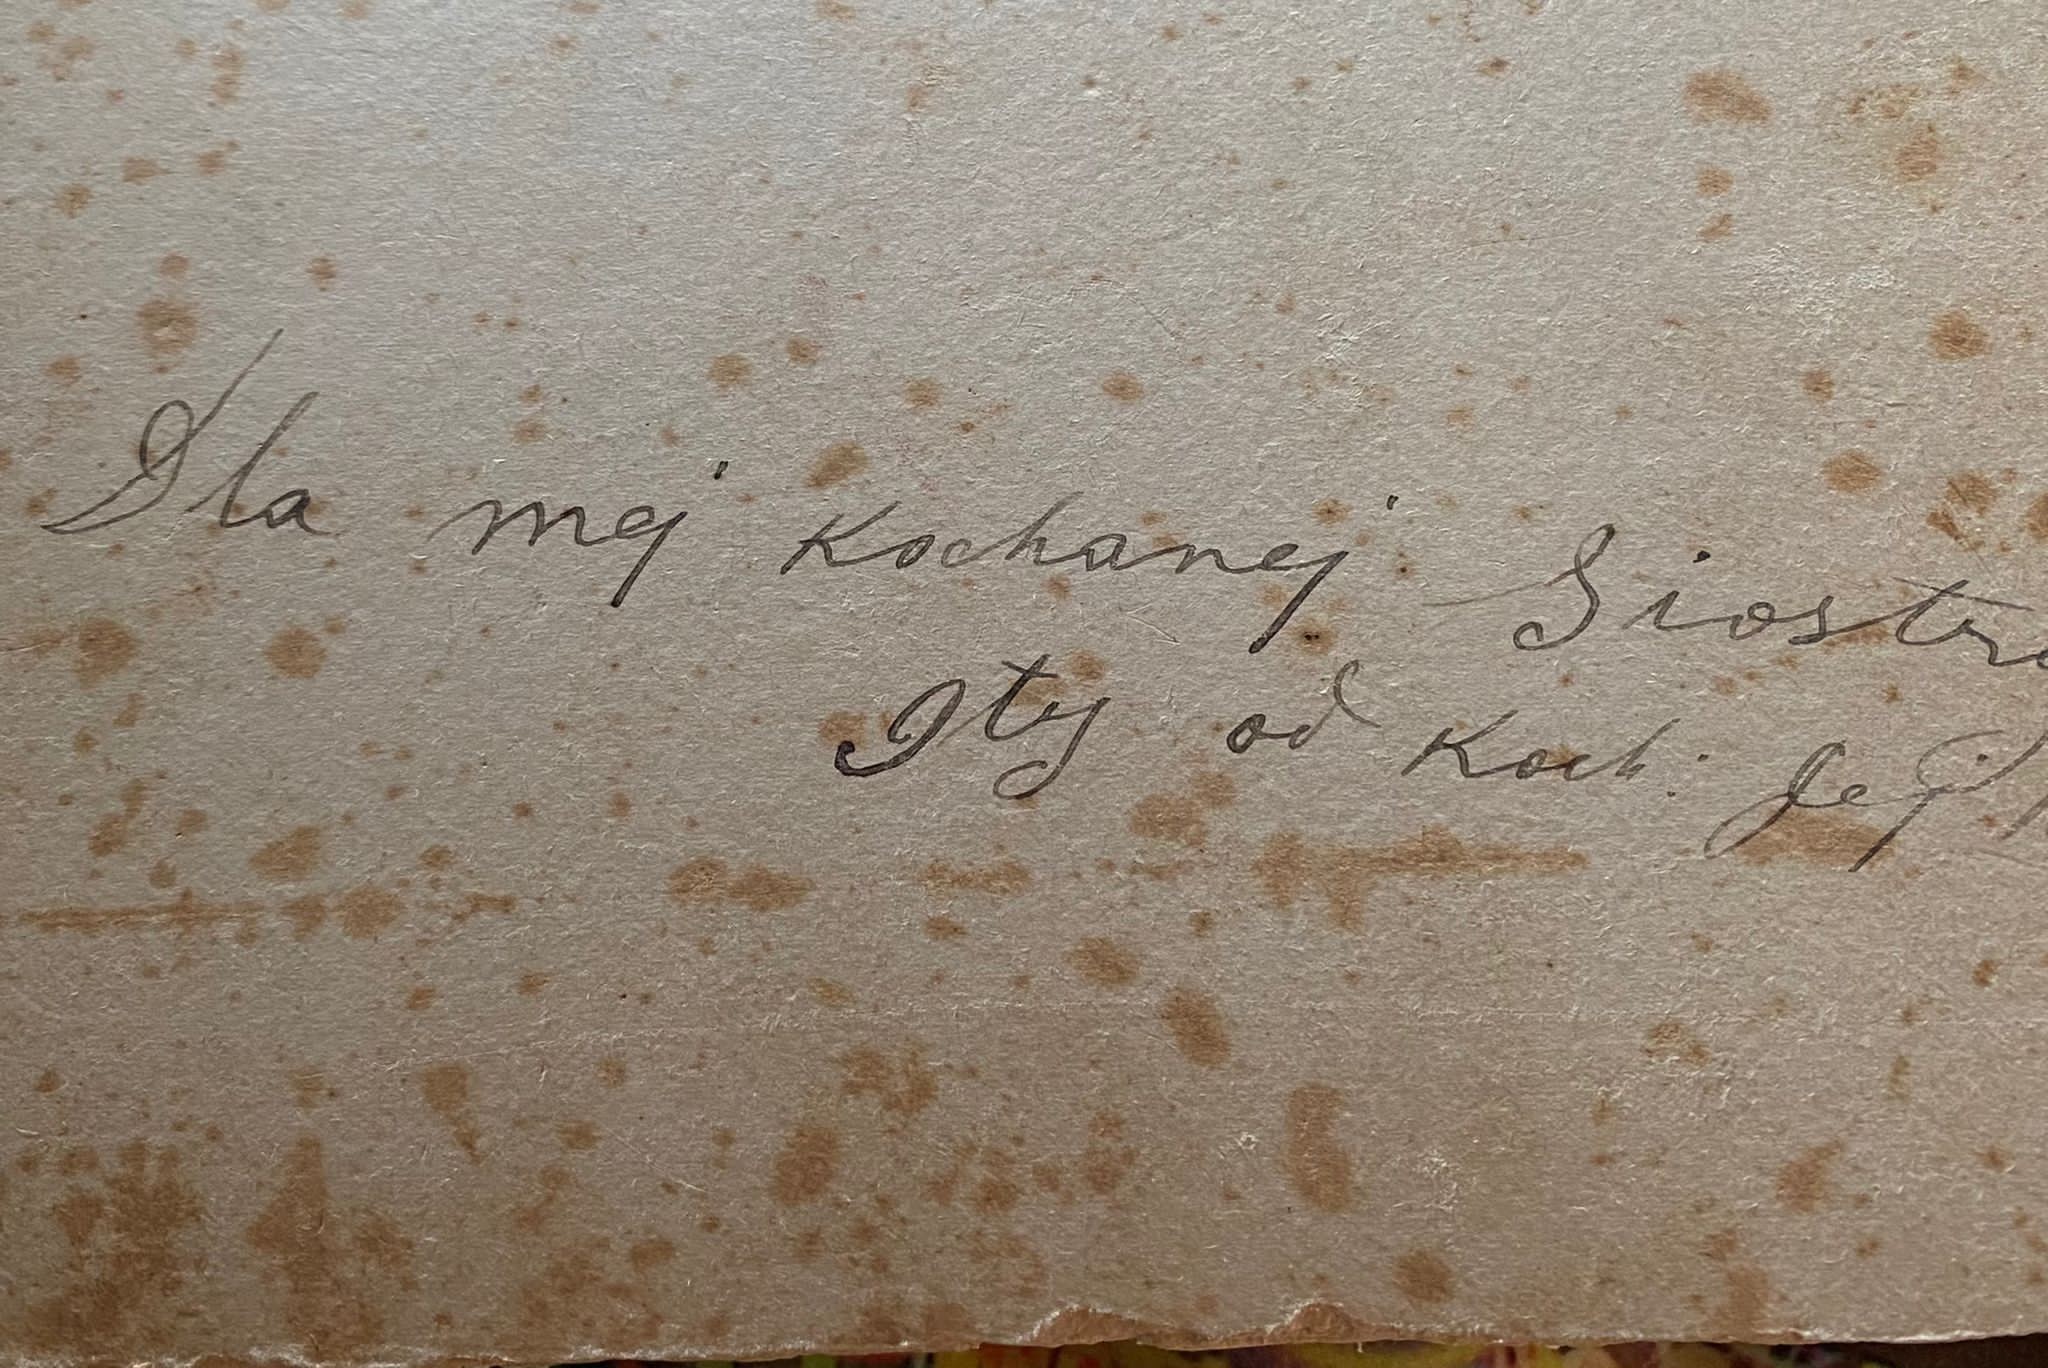 Dla mej Kochanej Siostr
Ity od Koch. Jej